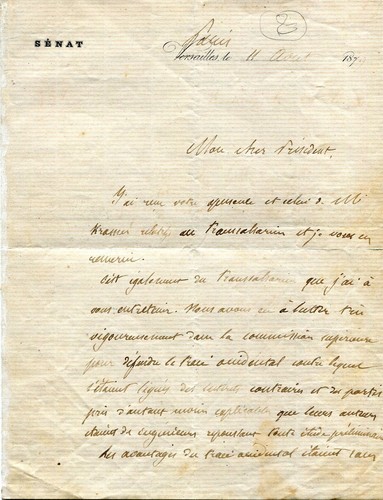 8
SÉNAT
Paris
Versailles, le 11 Avril 187
Mon cher Président,
J'ai reçu votre opuscule et celui de Mr
relatifs au transsaharien et je vous en
remercie.
C'est également du transsaharien que j'ai à
vous entretenir. Nous avons eu à lutter très
vigoureusement dans la commission supérieure
pour défendre le tracé occidental contre lequel
s'étaient ligués des intérêts contraires et des partis
pris d'autant moins explicables que leurs auteurs
étaient des ingénieurs repoussant toute étude préliminaire
Les avantages du tracé occidental étaient